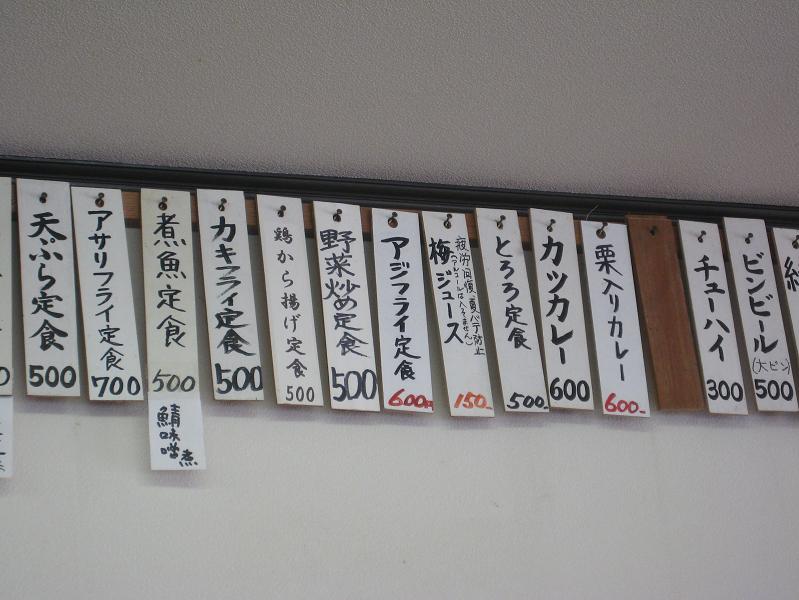 天ぷら定食
500
アサリフライ定食
700
煮魚定食
500
鯖味噌煮
カキフライ定食
500
鶏から揚げ定食
500
野菜炒め定食
500
アジフライ定食
600円
疲労回復夏バテ防止
(アルコールは入ってません)
梅ジュース
150-
とろろ定食
500-
カツカレー
600
栗入りカレー
600-
チューハイ
300
ビンビール
(大ビン)
500